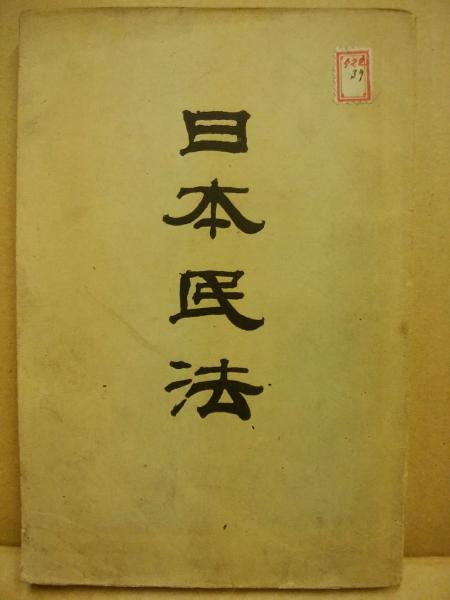 日本民法
39